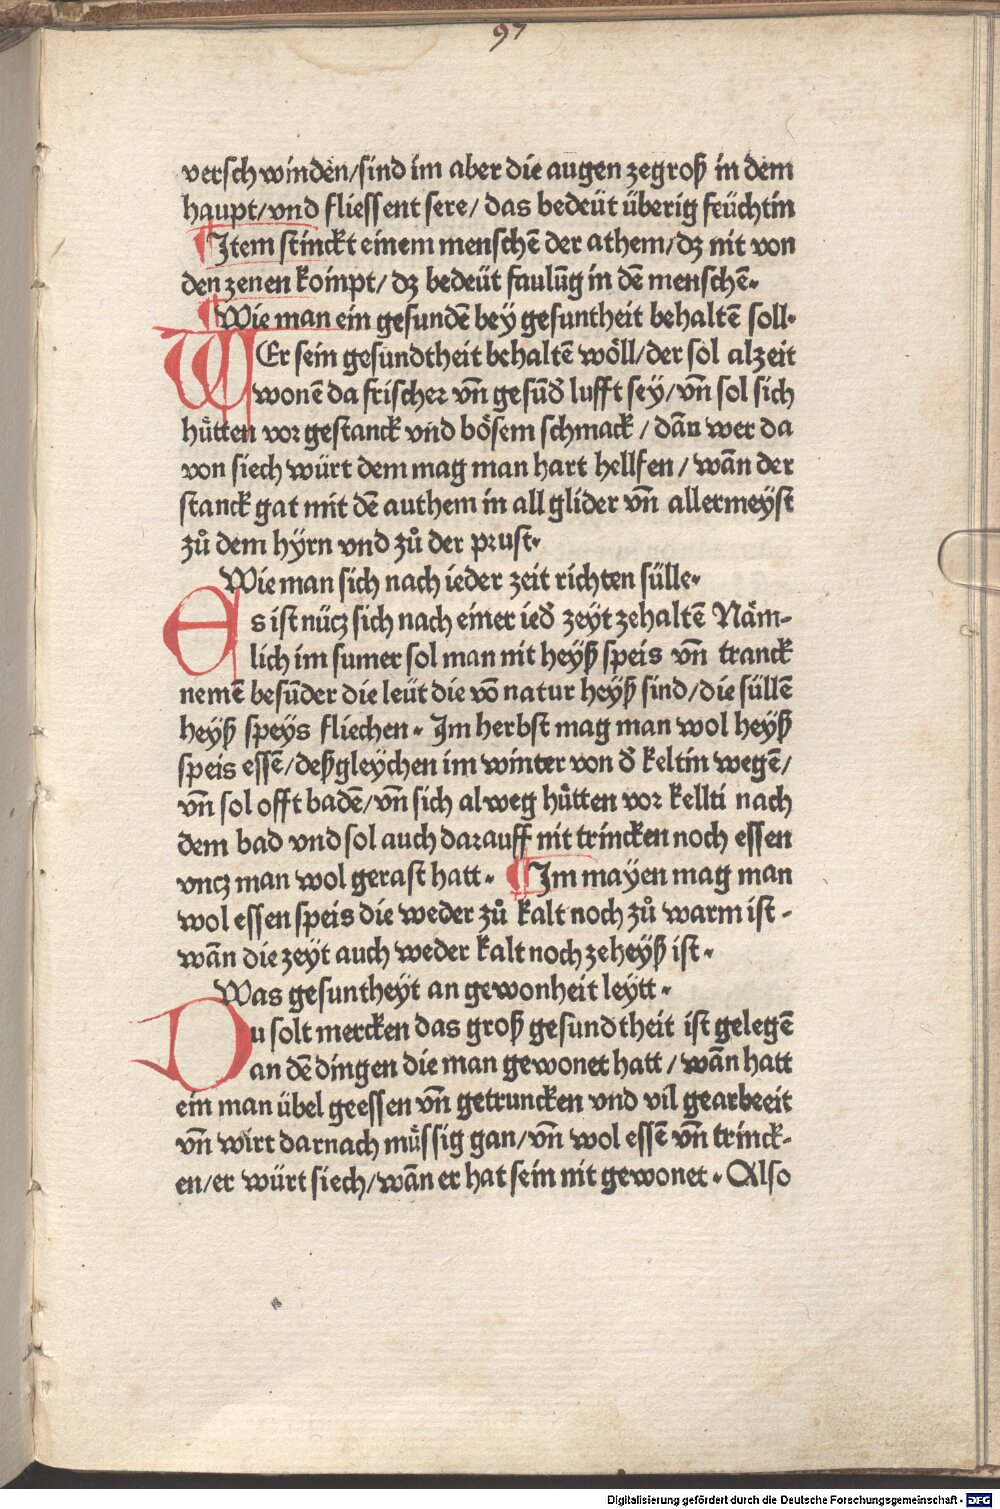 97
verschwinden/sind im aber die augen zegroß in dem
haupt/vnd fliessent sere/ das bedeüt überig feüchtin
¶Item stinckt einem menschē der athem/dz nit von
den zenen kompt/ dz bedeüt faulūg in dē menschē.
¶Wie man ein gesundē bey gesuntheit behaltē soll.
WEr sein gesundtheit behaltē wöll/der sol alzeit
wonē da frischer vñ gesūd lufft sey/vñ sol sich
hůtten vor gestanck vnd bösem schmack / dān wer da
von siech würt dem mag man hart hellfen/wān der
stanck gat mit dē authem in all glider vñ allermeyst
zů dem hyrn vnd zů der prust.
Wie man sich nach ieder zeit richten sülle.
Es ist nücz sich nach einer ied̄ zeyt zehaltē Näm-
lich im sumer sol man nit heyß speis vñ tranck
nemē besūder die leüt die vō natur heyß sind/die süllē
heyß speys fliechen. Im herbst mag man wol heyß
speis essē/deßgleychen im winter von d̄ keltin wegē/
vñ sol offt badē/vñ sich alweg hůtten vor kellti nach
dem bad vnd sol auch darauff nit trincken noch essen
vncz man wol gerast hatt. ¶Im mayen mag man
wol essen speis die weder zů kalt noch zů warm ist.
wān die zeyt auch weder kalt noch zeheyß ist.
Was gesuntheyt an gewonheit leytt.
Du solt mercken das groß gesundtheit ist gelegē
an dē dingen die man gewonet hatt/wān hatt
ein man übel geessen vñ getruncken vnd vil gearbeeit
vñ wirt darnach můssig gan/vñ wol essē vñ trinck-
en/er würt siech/wān er hat sein nit gewonet. Also
Digitalisierung gefördert durch die Deutsche Forschungsgemeinschaft - DFG